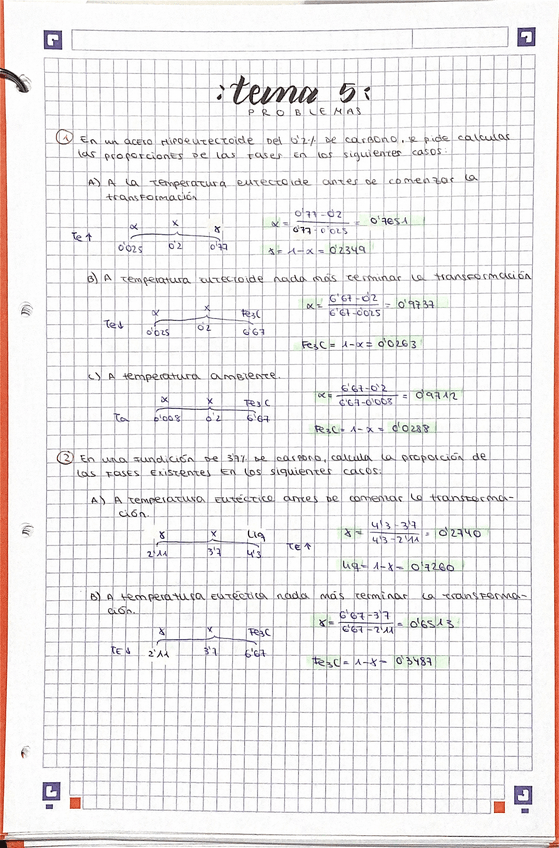 :tema 5:
PROBLEMAS
① En un acero Hipoeutectoide del 0'2% de carbono, se pide calcular
las proporciones de las fases en los siguientes casos:
A) A la temperatura eutectoide antes de comenzar la
transformación
α x γ
Te↑ 0'025 0'2 0'77
α = (0'77-0'2)/(0'77-0'025) = 0'7651
γ = 1-α = 0'2349
B) A temperatura eutectoide nada más terminar la transformación
α x Fe3C
Te↓ 0'025 0'2 6'67
α = (6'67-0'2)/(6'67-0'025) = 0'9737
Fe3C = 1-α = 0'0263
C) A temperatura ambiente.
α x Fe3C
Ta 0'008 0'2 6'67
α = (6'67-0'2)/(6'67-0'008) = 0'9712
Fe3C = 1-α = 0'0288
② En una fundición de 3'7% de carbono, calcula la proporción de
las fases existentes en los siguientes casos:
A) A temperatura eutéctica antes de comenzar la transforma-
ción.
γ x Liq
2'11 3'7 4'3 Te↑
γ = (4'3-3'7)/(4'3-2'11) = 0'2740
Liq = 1-γ = 0'7260
B) A temperatura eutéctica nada más terminar la transforma-
ción.
γ x Fe3C
TE↓ 2'11 3'7 6'67
γ = (6'67-3'7)/(6'67-2'11) = 0'6513
Fe3C = 1-γ = 0'3487